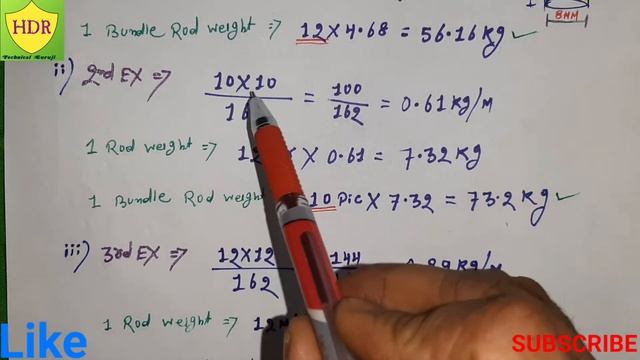 HDR
Technical Guruji
1 Bundle Rod weight => 12 X 4.68 = 56.16 Kg ✓
8MM
ii) 2nd EX => 10X10 / 16 = 100 / 162 = 0.61 Kg/M
1 Rod weight => 12 X 0.61 = 7.32 Kg
1 Bundle Rod weight 10 Pic X 7.32 = 73.2 Kg ✓
iii) 3rd EX => 12X12 / 162 144 Kg/M
1 Rod weight => 12
Like
SUBSCRIBE